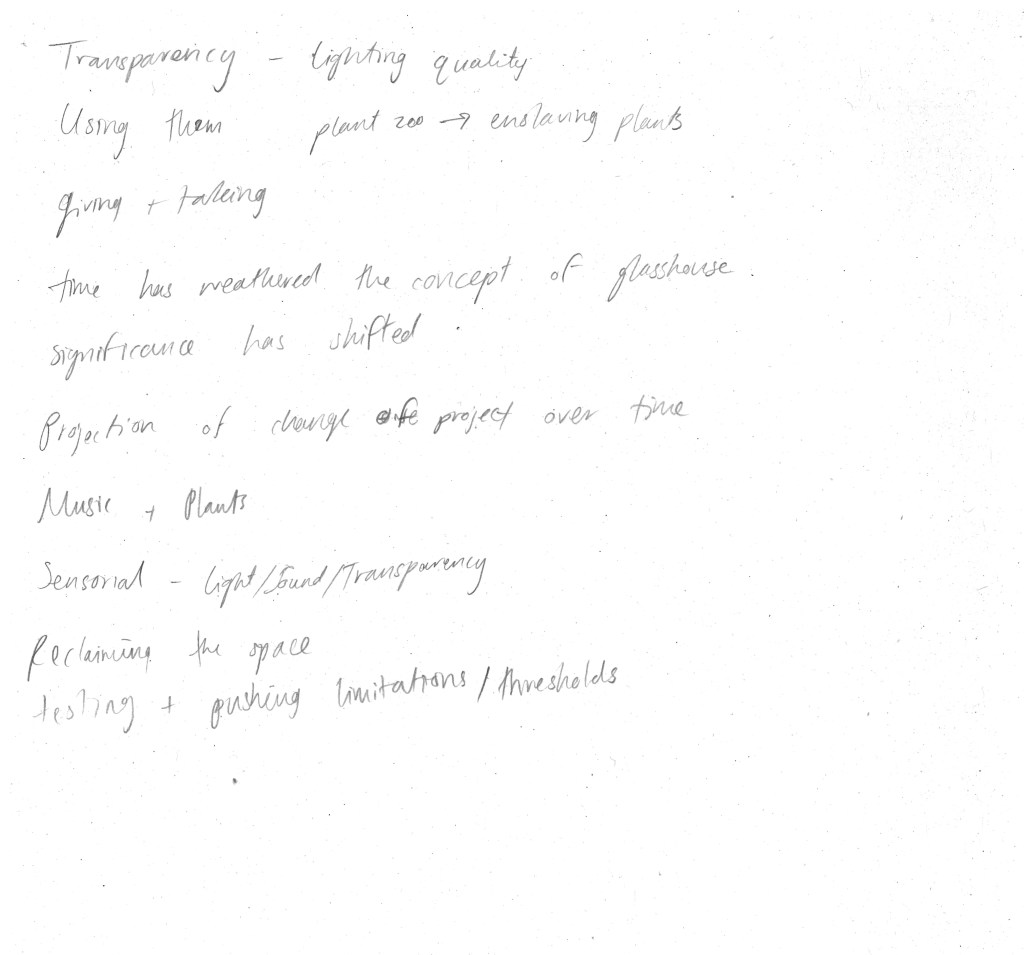 Transparency - lighting quality
Using them plant zoo → enslaving plants
giving + taking
time has weathered the concept of glasshouse.
significance has shifted.
Projection of change of project over time
Music + Plants
Sensorial - Light/Sound/Transparency
Reclaiming the space
testing + pushing limitations / thresholds